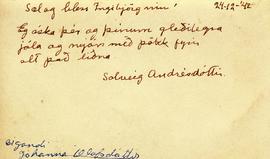 24-12-'42
Sæl og bless Ingibjörg mín!
Eg óska þér og þínum gleðilegra
jóla og nýárs með þökk fyrir
alt það liðna
Solveig Andrésdóttir
Eigandi
Jóhanna Ólafsdóttir